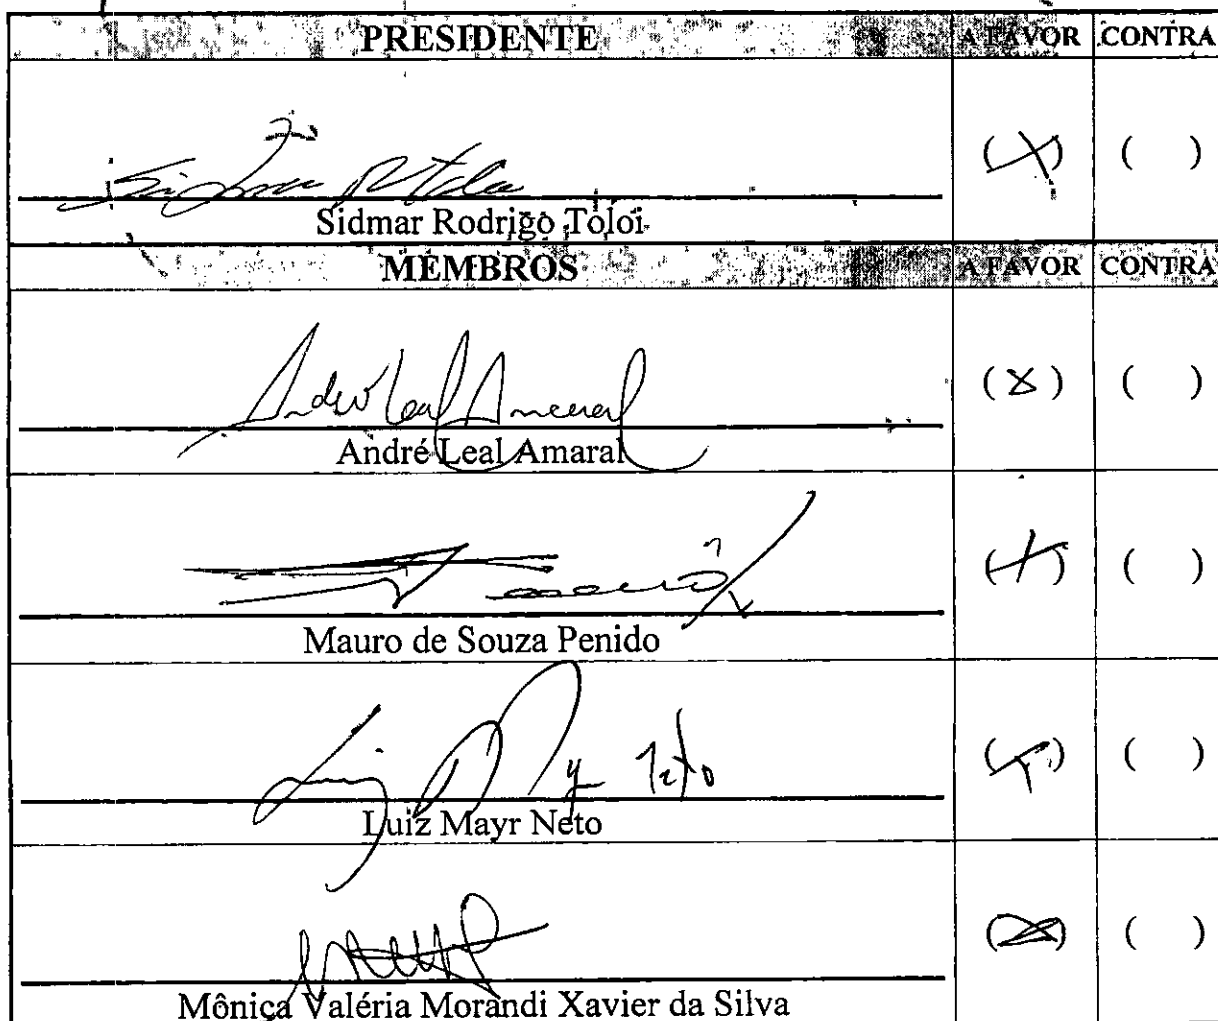 PRESIDENTE A FAVOR CONTRA
(X) ( )
Sidmar Rodrigo Toloi
MEMBROS A FAVOR CONTRA
André Leal Amaral
(X) ( )
André Leal Amaral
(X) ( )
Mauro de Souza Penido
(X) ( )
Luiz Mayr Neto
(X) ( )
Mônica Valéria Morandi Xavier da Silva